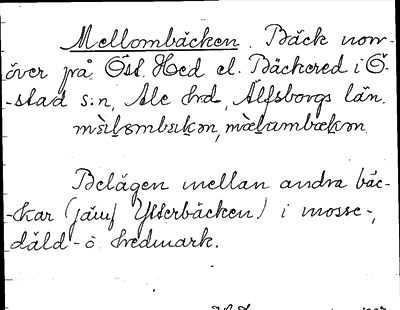 Mellombäcken. Bäck norr-
över på Öst. Hed el. Bäckered i Ö-
-stad s:n, Ale hrd, Älfsborgs län.
Belägen mellan andra bäc-
-kar (jämf Ytterbäcken) i mosse-,
däld- o hedmark.